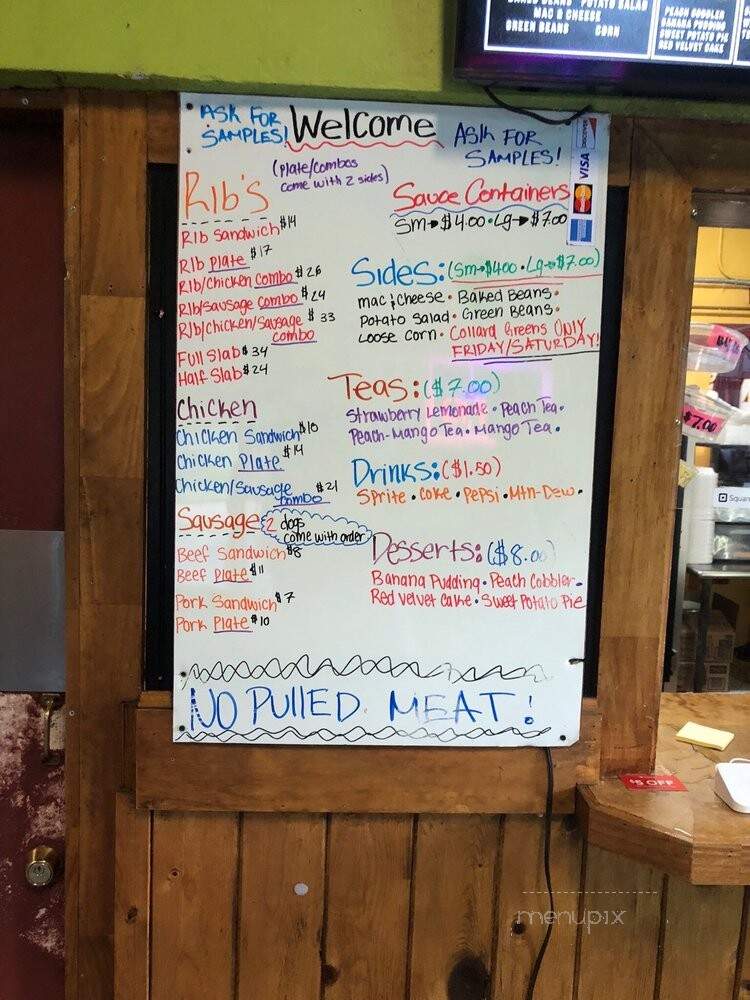 BAKED BEANS POTATO SALAD
MAC & CHEESE
GREEN BEANS CORN
PEACH COBBLER
BANANA PUDDING
SWEET POTATO PIE
RED VELVET CAKE
ASK FOR SAMPLES!
Welcome
ASK FOR SAMPLES!
DISCOVER
VISA
(Plate/combos
come with 2 sides)
RIb's
RIb Sandwich $14
RIb Plate $17
RIb/chicken combo $26
RIb/sausage combo $24
RIb/chicken/sausage $33
combo
Full Slab $34
Half Slab $24
Chicken
Chicken Sandwich $10
Chicken Plate $14
Chicken/Sausage $21
combo
Sausage 2 dogs
come with order
Beef Sandwich $8
Beef Plate $11
Pork Sandwich $7
Pork Plate $10
Sauce Containers
Sm→$4.00 • Lg→$7.00
Sides: (Sm→$400 • Lg→$7.00)
mac & cheese • Baked Beans •
Potato Salad • Green Beans •
Loose Corn • Collard Greens ONLY
FRIDAY/SATURDAY!
Teas: ($7.00)
Strawberry Lemonade • Peach Tea •
Peach-Mango Tea • Mango Tea •
Drinks: ($1.50)
Sprite • Coke • Pepsi • Mtn-Dew •
Desserts: ($8.00)
Banana Pudding • Peach Cobbler •
Red Velvet Cake • Sweet Potato Pie
NO PULLED MEAT!
$7.00
Square
$5 OFF
menupix